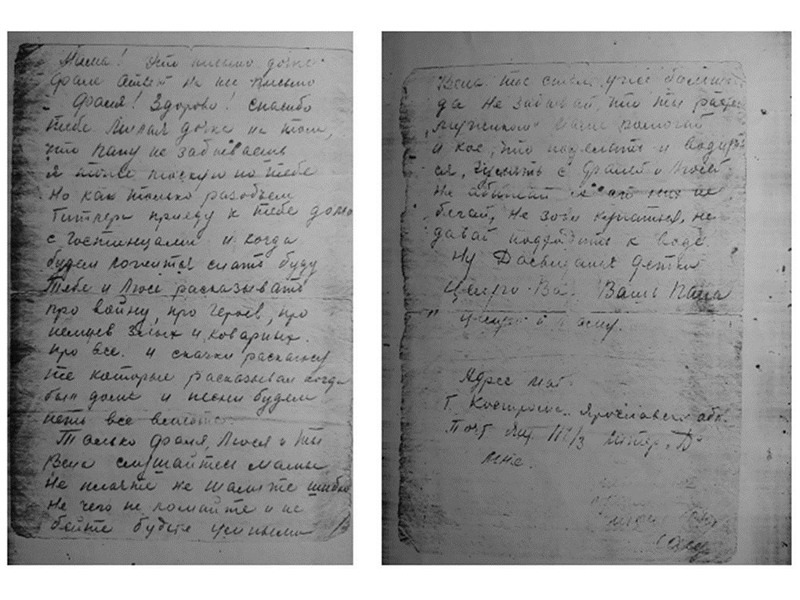 Мама! Это письмо дочке
Фране ответ на ее письмо
Франя! Здорово! Спасибо
тебе милая дочка за то,
что папу не забываешь
я тоже тоскую по тебе
Но как только разобьем
Гитлера приеду к тебе домой
с гостинцами и когда
будем ложится спать буду
Тебе и Люсе рассказывать
про войну, про героев, про
немцев злых и коварных.
про все. и сказки расскажу
те которые рассказывал когда
был дома и песни будем
петь все вместе.
Только Франя, Люся и ты
Вена слушайтесь мамы
Не плачте не шалите шибко
Не чего не ломайте и не
бейте будьте умными
Вена ты стал уже большой
да не забывай, что ты растешь
"мужиком" маме помогай
и кое, что поделать и водит
ся, гулять с Франей и Люсей
Не обижай их от них не
бегай, не зови купаться, не
давай подходить к воде.
Ну Досвиданье детки
Целую Вас Ваш Папа
Адрес мой
г. Кострома Ярославск обл.
Почт ящ литер "Д"
мне.